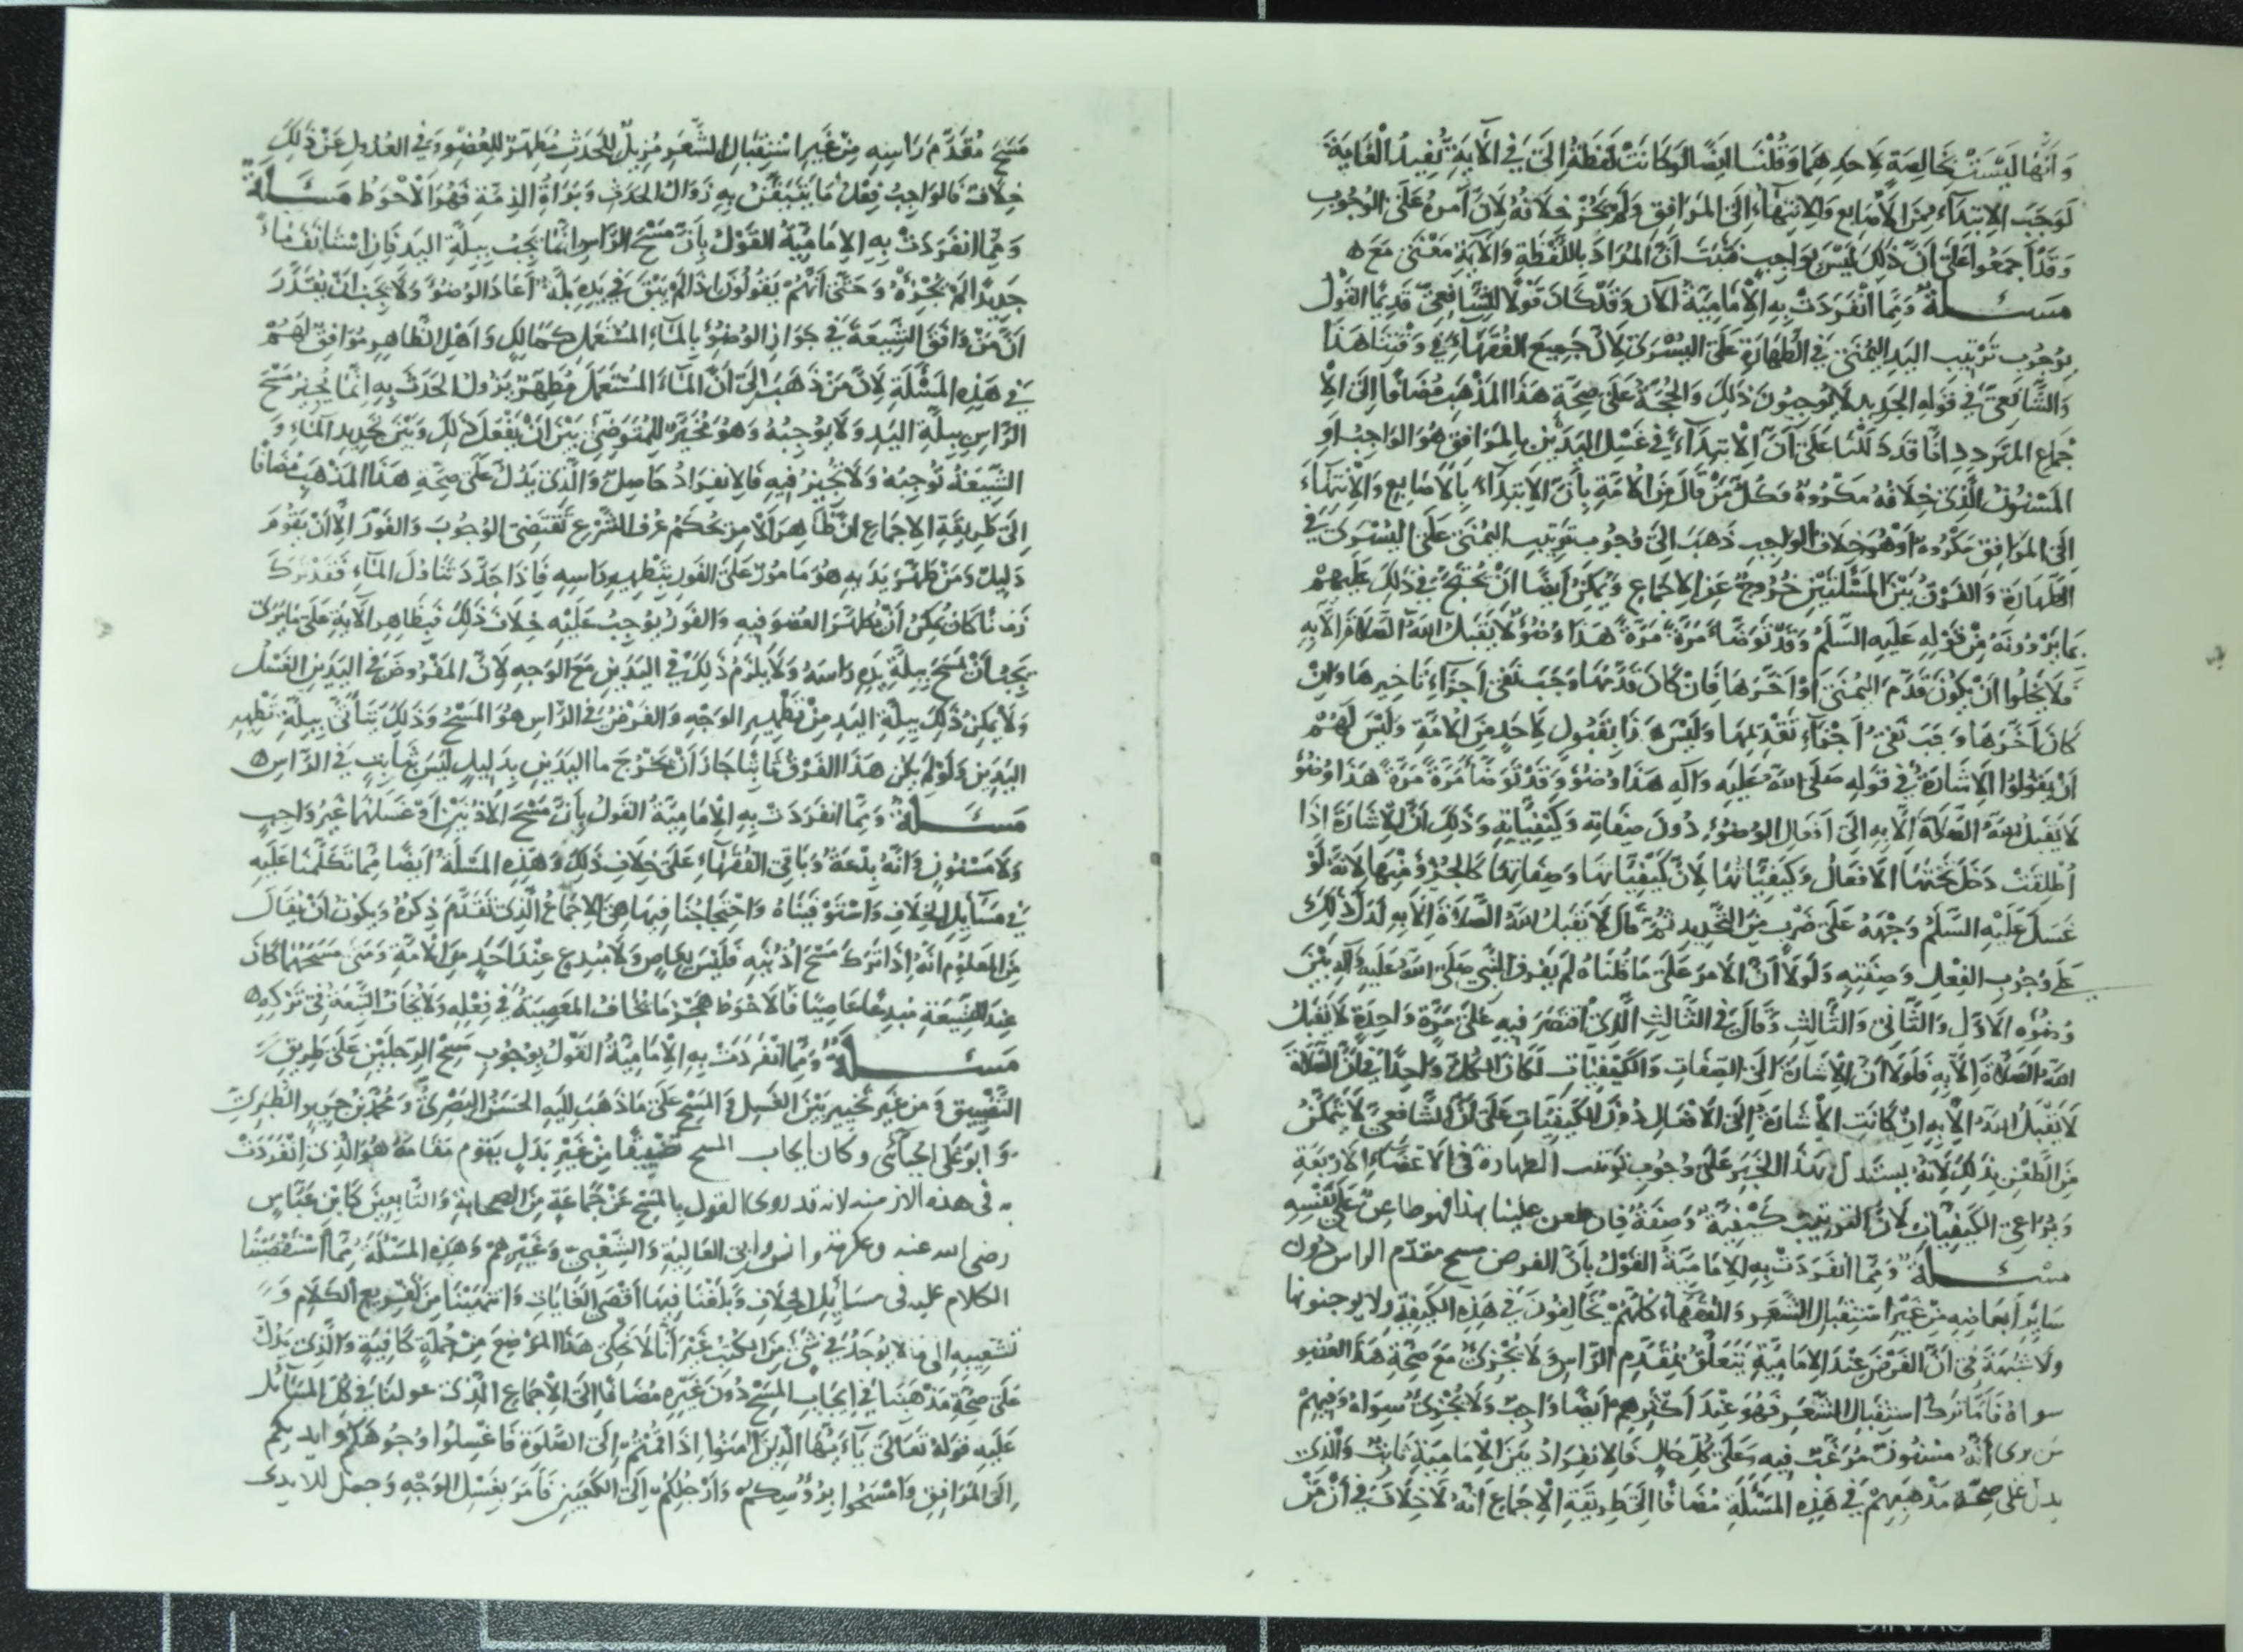 وَأنّها لَيْسَتْ بخَالِصَةٍ لِأحدِهِمَا وَقُلْنَا ايضًا لو كانَتْ لَفظَةُ إلى في الآيةِ تُفيدُ الْغَايَةَ
لَوَجَبَ الابْتِدَاءُ مِنَ الأصَابِع وَالانتِهَاءُ إلَى المَرَافِقِ وَلَم يَجُزْ خِلَافُهُ لِأنّ أمرهُ عَلَى الوُجُوبِ
وَقَدْ أجمَعُوا عَلَى أنّ ذَلكَ لَيْسَ بِوَاجِبٍ فَثَبَتَ أنّ المُرَادَ بِاللّفظَةِ وَالآيَةِ مَعْنَى مَعَ ه
مسئلة وَممّا انْفَرَدَتْ بِهِ الإمَامِيّةُ الآن وَقَدْ كَانَ قَوْلًا لِلشّافِعىّ قَدِيمًا القَولُ
بوُجُوب تَرْتِيب اليَدِ اليُمْنَى في الطّهَارَةِ عَلَى اليُسْرَى لِأنّ جَمِيعَ الفُقَهَاءِ في وَقْتِنَا هَذَا
وَالشّافعىّ في قَولهِ الجَدِيد لَا يُوجِبُونَ ذَلِكَ وَالحُجّةُ عَلَى صِحّةِ هَذَا المَذْهَبِ مُضَافًا إلَى الاِ
جْمَاع المتَرَدِد انّا قَدْ دَلّلْنَا عَلَى أنّ الابْتِدَاءَ في غَسْل اليَدَيْن بِالمَرَافِقِ هُوَ الوَاجِبُ او
المَسْنُونُ الّذِى خِلَافُهُ مَكْرُوهٌ فكُلّ مَنْ قَالَ مِنَ الأُمّةِ بِأنّ الابْتِدَاءَ بِالأصَابِع وَالانتِهَاءَ
الَى المَرَافِقِ مَكْرُوه أوْ هُوَ خِلَافُ الوَاجِبِ ذَهَبَ الَى وُجُوب تَرْتِيبِ اليُمْنَى عَلَى اليُسْرَى فِى
الطّهَارَة وَالفَرْقُ بَيْنَ المَسْئَلَتَيْن خُرُوجٌ عَنِ الاِجْمَاع وَيُمكِنُ ايضًا انْ يُحْتَجّ في ذَلِكَ عَلَيهِمْ
بمَا يَرْوُونَهُ مِنْ قَوْلِهِ عَلَيْهِ السّلَمُ وَقَدْ تَوَضّأ مَرَةً مَرَةً هَذَا وُضُوءٌ لَا يَقْبَلُ اللهُ الصّلَاةَ الّا بِهِ
فَلَا يَخلُوا انْ يَكُونَ قَدّمَ اليُمْنَى اوْ اخّرَهَا فَانْ كَانَ قَدّمَهَا وَجَبَ نَفْىُ اجزَاءِ تَاخِيرِهَا وَانْ
كَانَ اخّرَهَا وَجَبَ نَفىُ اجْزَاءِ تَقْدِيمِهَا وَلَيْسَ هَذَا بِقَوْل لِاحَدٍ مِنَ الأُمّةِ وَلَيْسَ لَهُمْ
انْ يَقُولُوا الاِشَارَةُ في قَولِهِ صَلّى اللهُ عَلَيهِ وَآلِهِ هَذَا وُضُوءٌ وَقَدْ تَوَضّأ مَرَةً مَرَةً هَذَا وُضُوءٌ
لَا يَقْبَلُ اللهُ الصّلَاةَ الّا بِهِ إلَى أفعَال الوضُوءِ دُونَ صِفَاتِهِ وَكَيْفِيّاتِهِ وَذَلِكَ أنّ الاشَارَةَ إذَا
أُطْلِقَتْ دَخَلَ تَحْتَهَا الأفعَالُ وَكَيفِيّاتُهَا لِأنّ كَيْفِيّاتهَا وَصِفَاتهَا كَالجُزْءِ مِنْهَا لِأنّهُ لَوْ
غَسَلَ عَلَيْهِ السّلَمُ وَجْهَهُ عَلَى ضَرْبٍ مِنَ التّحدِيدِ ثُمّ قَالَ لَا يَقبَلُ اللهُ الصّلَاةَ الّا بِهِ لَدَلّ ذَلِكَ
عَلى وُجُوبِ الفِعْلِ وَصِفَتِهِ وَلَولَا أنّ الأمرَ عَلَى مَا قُلنَاهُ لَم يَفرُق النّبِىّ صَلّى اللهُ عَلَيهِ وَآلهِ بَيْنَ
وُضُوْئِه الأوّل وَالثّانِى وَالثّالِثِ وَقَالَ في الثّالِثِ الّذِى اقتَصَرَ فِيهِ عَلَى مَرّةٍ وَاحِدَةٍ لَا يَقْبَلُ
اللهُ الصّلَاةَ الّا بِهِ فَلَولَا أنّ الاشَارَةَ الَى الصّفَاتِ وَالكَيْفِيّاتِ لَكَانَ الكُلّ وَاحِدًا في أنّ الصّلاةَ
لَا يَقْبَلُ اللهُ الّا بِهِ انْ كَانَتِ الاشَارَةُ إلَى الأفعَال دُونَ الكَيفِيّاتِ عَلَى أنّ الشّافعِىّ لَا يَتَمَكّنُ
مِنَ الطّعْن بِذَلِكَ لِأنّهُ يستَدِلّ بهَذَا الخَبَر عَلَى وُجُوبِ تَرتيب الطهارة في الاعضَاءِ الأربَعَةِ
وَيُرَاعى الكَيفِيّاتِ لِأنّ التّرتِيبَ كَيْفِيّةٌ وَصِفَةٌ فَإن طعن علينا بهذا فهو طاعِنٌ عَلَى نَفْسِهِ
مسئلة وَممّا انفَرَدَتْ بِهِ الاِمَامِيّةُ القَوْلُ بأنّ الفرض مسح مقدّم الراس دُون
سَايِرِ أبعَاضِهِ مِنْ غَيْرِ اسْتِقْبَالِ الشّعَرِ وَالفُقَهَاءُ كُلّهُمْ يُخَالِفُونَ في هَذِهِ الكَيفِيّةِ ولا يوجبونها
ولَا شُبهَةَ في أنّ الفَرْضَ عِنْدَ الاِمَامِيّةِ يَتَعَلّقُ بمُقَدّم الرّاسِ وَلَا يُجْزِئُ مَعَ صِحّةِ هَذَا العُضو
سواهُ فَأمّا تَركُ استِقبَالِ الشّعَر فَهُوَ عِنْدَ أكثَرِهِم ايضًا وَاجِبٌ وَلَا يُجْزِئُ سِوَاهُ وَفِيهِمْ
مَن يرى أنّهُ مَسْنُونٌ مُرَغّبٌ فِيهِ وَعَلَى كُلّ حَالٍ فَالانفِرَادُ مِنَ الإمَامِيّةِ ثَابِتٌ وَالّذِى
يدلّ عَلَى صِحّةِ مَذْهَبِهِمْ في هَذِهِ المَسْئَلَةِ مُضَافًا إلَى طَرِيقَةِ الإجْمَاعِ أنّهُ لَا خِلَافَ في أنّ مَنْ
مَسَحَ مُقَدّمَ رَاسِهِ مِنْ غَيرِ اسْتِقبَالِ الشّعَرِ مُزِيلٌ لِلحَدَثِ مُطَهّرٌ للعُضْوِ وَفي العُدُولِ عَنْ ذَلِكَ
خِلَافٌ فَالوَاجِبُ فِعْلُ مَا يَتَيَقّنُ بِهِ زَوَالُ الحَدَثِ وَبَرَاةُ الذِمّةِ فَهُوَ الْأحْوَطُ مسئلة
وَممّا انفَرَدَتْ بِهِ الإمَامِيّةُ القَوْلُ بِأنّ مَسْحَ الرّاسِ انّمَا يَجِبُ بِبِلّةِ اليَدِ فَإنِ اسْتَانَفَ مَاءً
جَدِيدًا لَمْ يُجْزِهُ وَحَتّى أنّهُمْ يَقُولُونَ اذَا لَمْ يَبْقَ في يَدِهِ بِلّةٌ أعَادَ الوُضُوءَ وَلَا يَجِبُ انْ يُقَدّرَ
أنّ مَنْ وَافَقَ الشّيعَةَ في جَوَازِ الوضُوءِ بِالمَاءِ المُسْتَعمَلِ كَمَالِكٍ وَأهْلِ الظّاهِرِ مُوَافِقٌ لَهُمْ
في هَذِهِ المَسْئَلَةِ لِأنّ مَنْ ذَهَبَ إلَى أنّ المَاءَ المُسْتَعمَلَ مُطَهّرٌ يَزُولُ الحَدَثُ بِهِ إنّمَا يُجِيزُ مَسْحَ
الرّاسِ بِبِلّةِ اليَدِ وَلَا يُوجِبُهُ وَهُوَ مُخَيّرٌ لِلمُتَوَضّئ بَيْنَ انْ يَفْعَلَ ذَلِكَ وَبَيْنَ تَجدِيدِ المَاءِ وَ
الشّيعَةُ تُوجِبُهُ وَلَا تُجِيزُ فِيهِ فَالانفِرَادُ حَاصِلٌ وَالّذِى يَدُلّ عَلَى صِحّةِ هَذَا المَذْهَبِ مُضَافًا
إلَى طَرِيقَةِ الإجمَاع أنّ ظَاهِرَ الأمرِ بحُكمِ عُرفِ الشّرْعِ تَقتَضِى الوُجُوبَ وَالفَوْرَ الّا أنْ يَقُومَ
دَلِيلٌ وَمَنْ طَهّرَ يَدَيهِ هُوَ مَامُورٌ عَلَى الفَورِ بِتَطْهِيرِ رَاسِهِ فَإذَا جَدّدَ تَنَاوُلَ المَاءِ فَقَدْ تَرَكَ
زَمَانًا كَانَ يمكِنُ أنْ يُطَهّرَ العُضوَ فِيهِ وَالفَورُ يُوجِبُ عَلَيْهِ خِلَافَ ذَلِكَ فَبِظَاهِرِ الآيَةِ عَلَى مَا تَرَى
يَجِبُ أنْ يَمْسَحَ بِبِلّةِ يَدِهِ رَاسَهُ وَلَا يَلزَمُ ذَلِكَ في اليَدَينِ مَعَ الوَجهِ لِأنّ المَفْرُوضَ في اليَدَينِ الغَسْلُ
وَلَا يمكِنُ ذَلِكَ بِبِلّةِ اليَدِ مِنْ تَطْهِيرِ الوَجْهِ وَالفَرْضُ في الرّاسِ هُوَ المَسْحُ وَذَلِكَ يَتَأتّى بِبِلّةِ تَطْهِيرِ
اليَدَينِ وَلَوْ لَم يَكُن هَذَا الفَرقُ ثَابِتًا جَازَ أنْ يَخْرُجَ ما اليَدَينِ بِدَلِيلٍ لَيْسَ بِثَابِتٍ في الرّاسِ ه
مسئلة وَممّا انفَرَدَت بِهِ الْإمَامِيّةُ القَولُ بِأنّ مَسْحَ الأذُنَيْنِ أوْ غَسلَهُمَا غَيرُ وَاجِبٍ
وَلَا مَسْنُونٍ وَانّهُ بِدْعَةٌ وَبَاقِى الفُقَهَاءِ عَلَى خِلَافِ ذَلِكَ وَهَذِهِ المَسْئَلَةُ أيضًا مِمّا تَكَلّمنَا عَلَيهِ
في مَسَايِلِ الخِلَافِ وَاسْتَوْفَينَاهُ وَاحْتِجَاجُنَا فِيهَا هِىَ الإجمَاعُ الّذِى تَقَدّمَ ذِكرُهُ وَيَكُونُ أنْ يُقَالَ
مِنَ المَعلُومِ أنّهُ إذَا تَرَكَ مَسْحَ أذُنَيهِ فَلَيسَ بِعَاصٍ وَلَا مُبْدِعٍ عِنْدَ أحَدٍ مِنَ الأُمّةِ وَمَتى مَسَحَهُمَا كَانَ
عِندَ الشّيعَةِ مُبدِعًا عَاصِيًا فَالاحْوَطُ هَجْرُ مَا يُخَافُ المَعصِيَةُ في فِعْلِهِ وَلَا يُخَافُ التّبِعَةُ في تَرْكِهِ ه
مسئلة وَممّا انْفَرَدَتْ بِهِ الإمَامِيّةُ القَوْلُ بِوُجُوبِ مَسْحِ الرّجلَيْنِ عَلَى طَرِيقِ
التّضْيِيقِ وَمِن غَيرِ تَخْيِيرٍ بَيْنَ الغَسْلِ وَالمَسْحِ عَلَى مَا ذَهَبَ إلَيهِ الحَسَنُ البَصْرِىّ وَمُحَمّدُ بْنُ جَرِيرٍ الطّبَرِىّ
وَأبُو عَلِى الجُبّائى وكان إيجاب المسح تَضْيِيقًا مِنْ غَيْرِ بَدَلٍ يَقوم مَقَامَهُ هُوَ الّذِى انْفَرَدَتْ
به فى هذه الازمنه لانه قد روى القول بالمسْح عَنْ جَمَاعَةٍ مِنَ الصحابَةِ وَالتّابِعِينَ كَابْنِ عَبّاسٍ
رضى الله عنه وعكرمة وانس وابى العَالِيَةِ وَالشّعْبِىّ وَغَيْرِهِمْ وَهَذِهِ المَسْئَلَةُ مِمّا اسْتَقْصَيْنَا
الكلام عليه فى مسَايلِ الخِلَافِ وَبَلَغْنَا فِيهَا أقْصَى الغَايَاتِ وَانْتَهَيْنَا مِنْ تَفْرِيعِ الكَلَامِ وَ
تشعيبه الى ما لا يُوجَدُ في شَىْءٍ مِنَ الكُتُبِ غَيْرَ أنّا لَا نُخْلِى هَذَا المَوْضِعَ مِنْ جُملَةٍ كَافِيَةٍ وَالّذِى يَدُلّ
عَلَى صِحّةِ مَذْهَبِنَا في إيجَابِ المَسْحِ دُونَ غَيْرِهِ مُضَافًا إلَى الإجمَاعِ الّذِى عولنا في كُلّ المَسَائلِ
عَلَيهِ قَولُهُ تَعَالَى يَا أيّهَا الّذِينَ آمَنُوا إذَا قُمْتُمْ إلَى الصّلَوةِ فَاغْسِلُوا وُجُوهَكُمْ وَايديكم
إلَى المَرَافِقِ وَامْسَحُوا بِرُؤُسِكُم وَأرْجُلِكُمْ إلَى الكَعْبَيْنِ فَأمَرَ بِغَسْلِ الوَجْهِ وَجعلَ للايدى